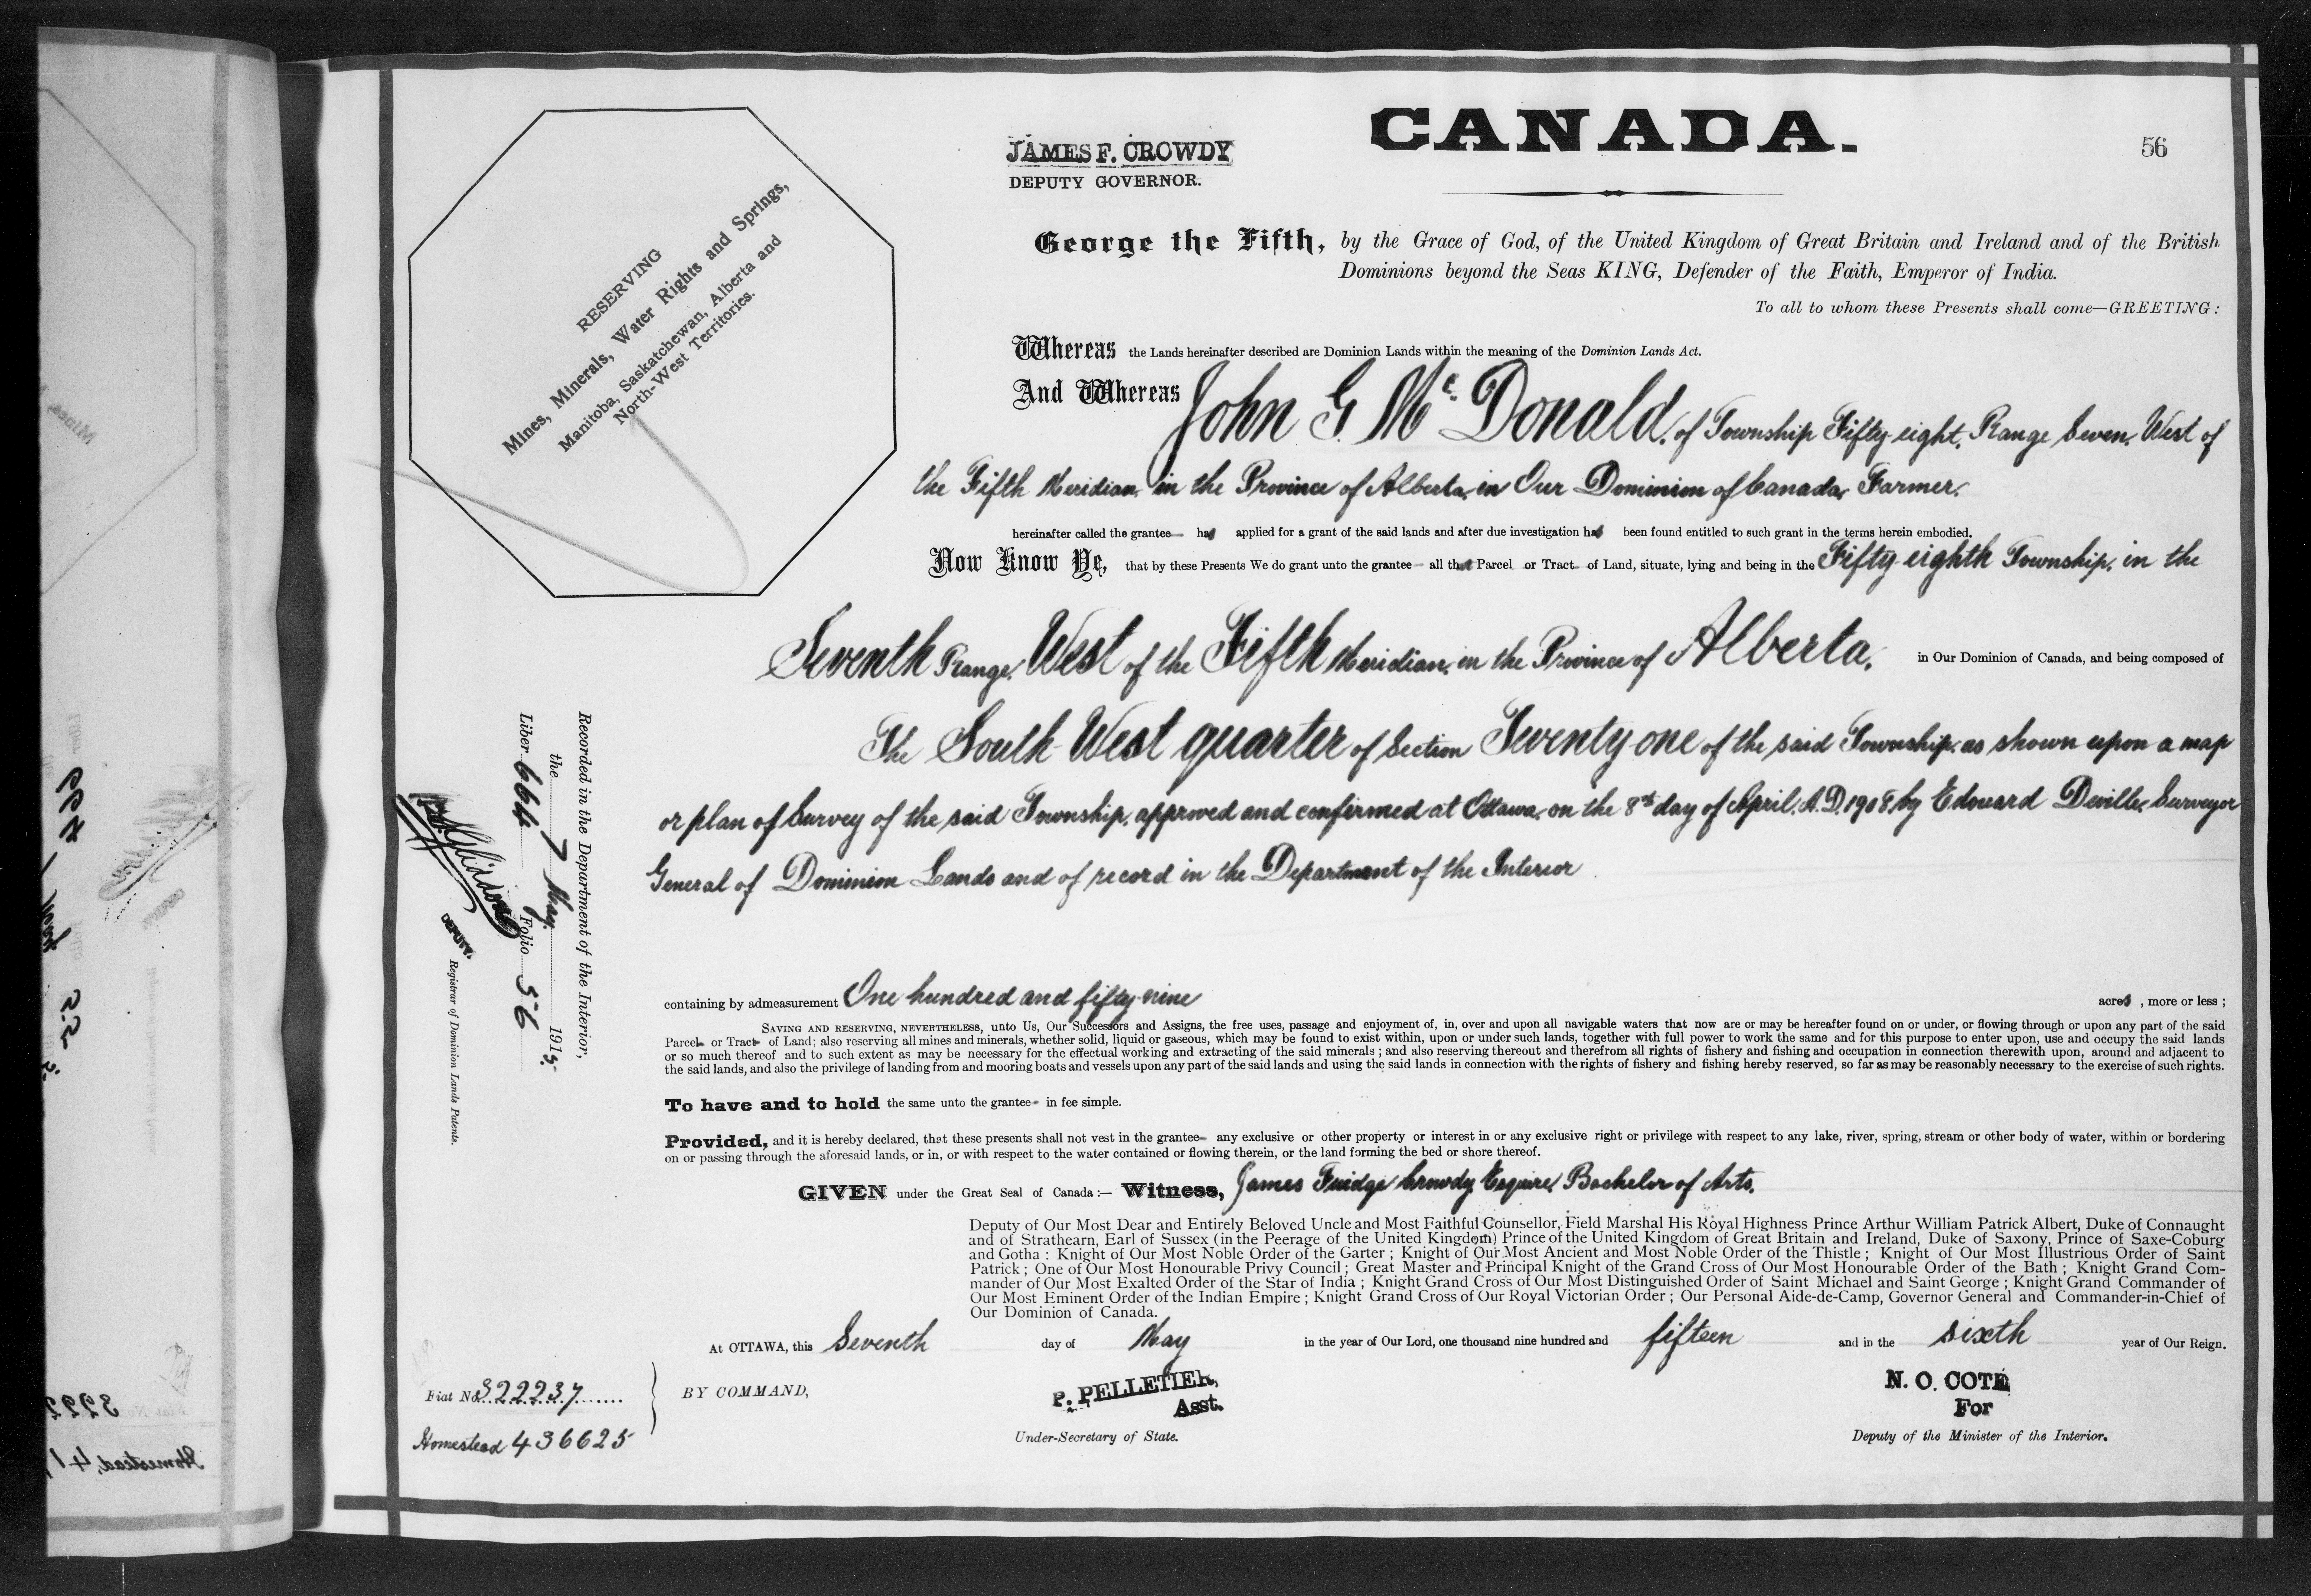 CANADA.
56
JAMES F. CROWDY
DEPUTY GOVERNOR.
RESERVING
Mines, Minerals, Water Rights and Springs,
Manitoba, Saskatchewan, Alberta and
North-West Territories.
George the Fifth, by the Grace of God, of the United Kingdom of Great Britain and Ireland and of the British
Dominions beyond the Seas KING, Defender of the Faith, Emperor of India.
To all to whom these Presents shall come—GREETING:
Whereas the Lands hereinafter described are Dominion Lands within the meaning of the Dominion Lands Act.
And Whereas John G. McDonald, of Township Fifty-eight, Range Seven, West of
the Fifth Meridian, in the Province of Alberta, in Our Dominion of Canada, Farmer,
hereinafter called the grantee has applied for a grant of the said lands and after due investigation has been found entitled to such grant in the terms herein embodied.
Now Know Ye, that by these Presents We do grant unto the grantee all that Parcel or Tract of Land, situate, lying and being in the Fifty-eighth Township, in the
Seventh Range, West of the Fifth Meridian, in the Province of Alberta, in Our Dominion of Canada, and being composed of
The South West quarter of Section Twenty one of the said Township, as shown upon a map
or plan of Survey of the said Township, approved and confirmed at Ottawa, on the 8th day of April, A.D. 1908, by Edouard Deville, Surveyor
General of Dominion Lands and of record in the Department of the Interior
containing by admeasurement One hundred and fifty-nine acres, more or less;
SAVING AND RESERVING, NEVERTHELESS, unto Us, Our Successors and Assigns, the free uses, passage and enjoyment of, in, over and upon all navigable waters that now are or may be hereafter found on or under, or flowing through or upon any part of the said
Parcel or Tract of Land; also reserving all mines and minerals, whether solid, liquid or gaseous, which may be found to exist within, upon or under such lands, together with full power to work the same and for this purpose to enter upon, use and occupy the said lands
or so much thereof and to such extent as may be necessary for the effectual working and extracting of the said minerals; and also reserving thereout and therefrom all rights of fishery and fishing and occupation in connection therewith upon, around and adjacent to
the said lands, and also the privilege of landing from and mooring boats and vessels upon any part of the said lands and using the said lands in connection with the rights of fishery and fishing hereby reserved, so far as may be reasonably necessary to the exercise of such rights.
To have and to hold the same unto the grantee in fee simple.
Provided, and it is hereby declared, that these presents shall not vest in the grantee any exclusive or other property or interest in or any exclusive right or privilege with respect to any lake, river, spring, stream or other body of water, within or bordering
on or passing through the aforesaid lands, or in, or with respect to the water contained or flowing therein, or the land forming the bed or shore thereof.
GIVEN under the Great Seal of Canada:— Witness, James Fuidge Crowdy, Esquire, Bachelor of Arts,
Deputy of Our Most Dear and Entirely Beloved Uncle and Most Faithful Counsellor, Field Marshal His Royal Highness Prince Arthur William Patrick Albert, Duke of Connaught
and of Strathearn, Earl of Sussex (in the Peerage of the United Kingdom) Prince of the United Kingdom of Great Britain and Ireland, Duke of Saxony, Prince of Saxe-Coburg
and Gotha: Knight of Our Most Noble Order of the Garter; Knight of Our Most Ancient and Most Noble Order of the Thistle; Knight of Our Most Illustrious Order of Saint
Patrick; One of Our Most Honourable Privy Council; Great Master and Principal Knight of the Grand Cross of Our Most Honourable Order of the Bath; Knight Grand Com-
mander of Our Most Exalted Order of the Star of India; Knight Grand Cross of Our Most Distinguished Order of Saint Michael and Saint George; Knight Grand Commander of
Our Most Eminent Order of the Indian Empire; Knight Grand Cross of Our Royal Victorian Order; Our Personal Aide-de-Camp, Governor General and Commander-in-Chief of
Our Dominion of Canada.
At OTTAWA, this Seventh day of May in the year of Our Lord, one thousand nine hundred and fifteen and in the sixth year of Our Reign.
BY COMMAND,
P. PELLETIER,
Asst.
Under-Secretary of State.
N. O. COTE
For
Deputy of the Minister of the Interior.
Fiat No. 322237
Homestead 436625
Recorded in the Department of the Interior,
the 7 May 1915.
Liber 664 Folio 56
DEPUTY
Registrar of Dominion Lands Patents.